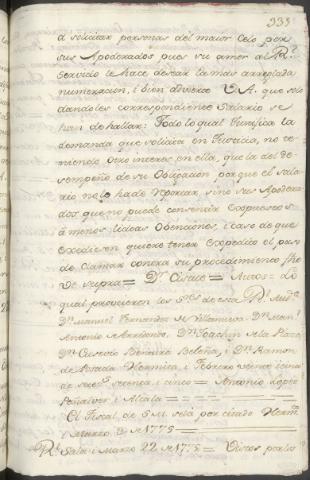 333
a solicitar personas del maior celo por
sus Apoderados pues su amor al Rl.
servicio le hace desear la mas arreglada
numeracion, i bien advierte V.A. que solo
dandoles correspondiente salario se
han de hallar: Todo lo qual Justifica la
demanda que solicita en Justicia, no te
niendo otro interes en ella, que la del de
sempeño de su obligacion, porque el sala
rio no lo ha de reportar, sino sus Apodera
dos que no puede consentir expuestos
á menos licitas obenciones, i caso de que
excediesen quiere tener expedito el pas
de clamar contra su procedimiento fho
ut supra = Dr. = Autos = Lo
qual proveieron los Sres. de esta Rl. Auda.
Dn. Manuel Fernandez de Villanueva Dn. Man
Antonio de Arredondo, Dn. Joachin de la Plaza
Dn. Eusevio Ventura Beleña, i Dn. Ramon
de Posada Hermita i Febrero veinte i cinco
de setec. setenta i cinco = Antonio Lopez
Peñalver i Alcala =
El Fiscal de S M. está por citado Hermta.
i Marzo de 1775 =
Rl. Sala i Marzo 22 de 1775 = Vistos por los